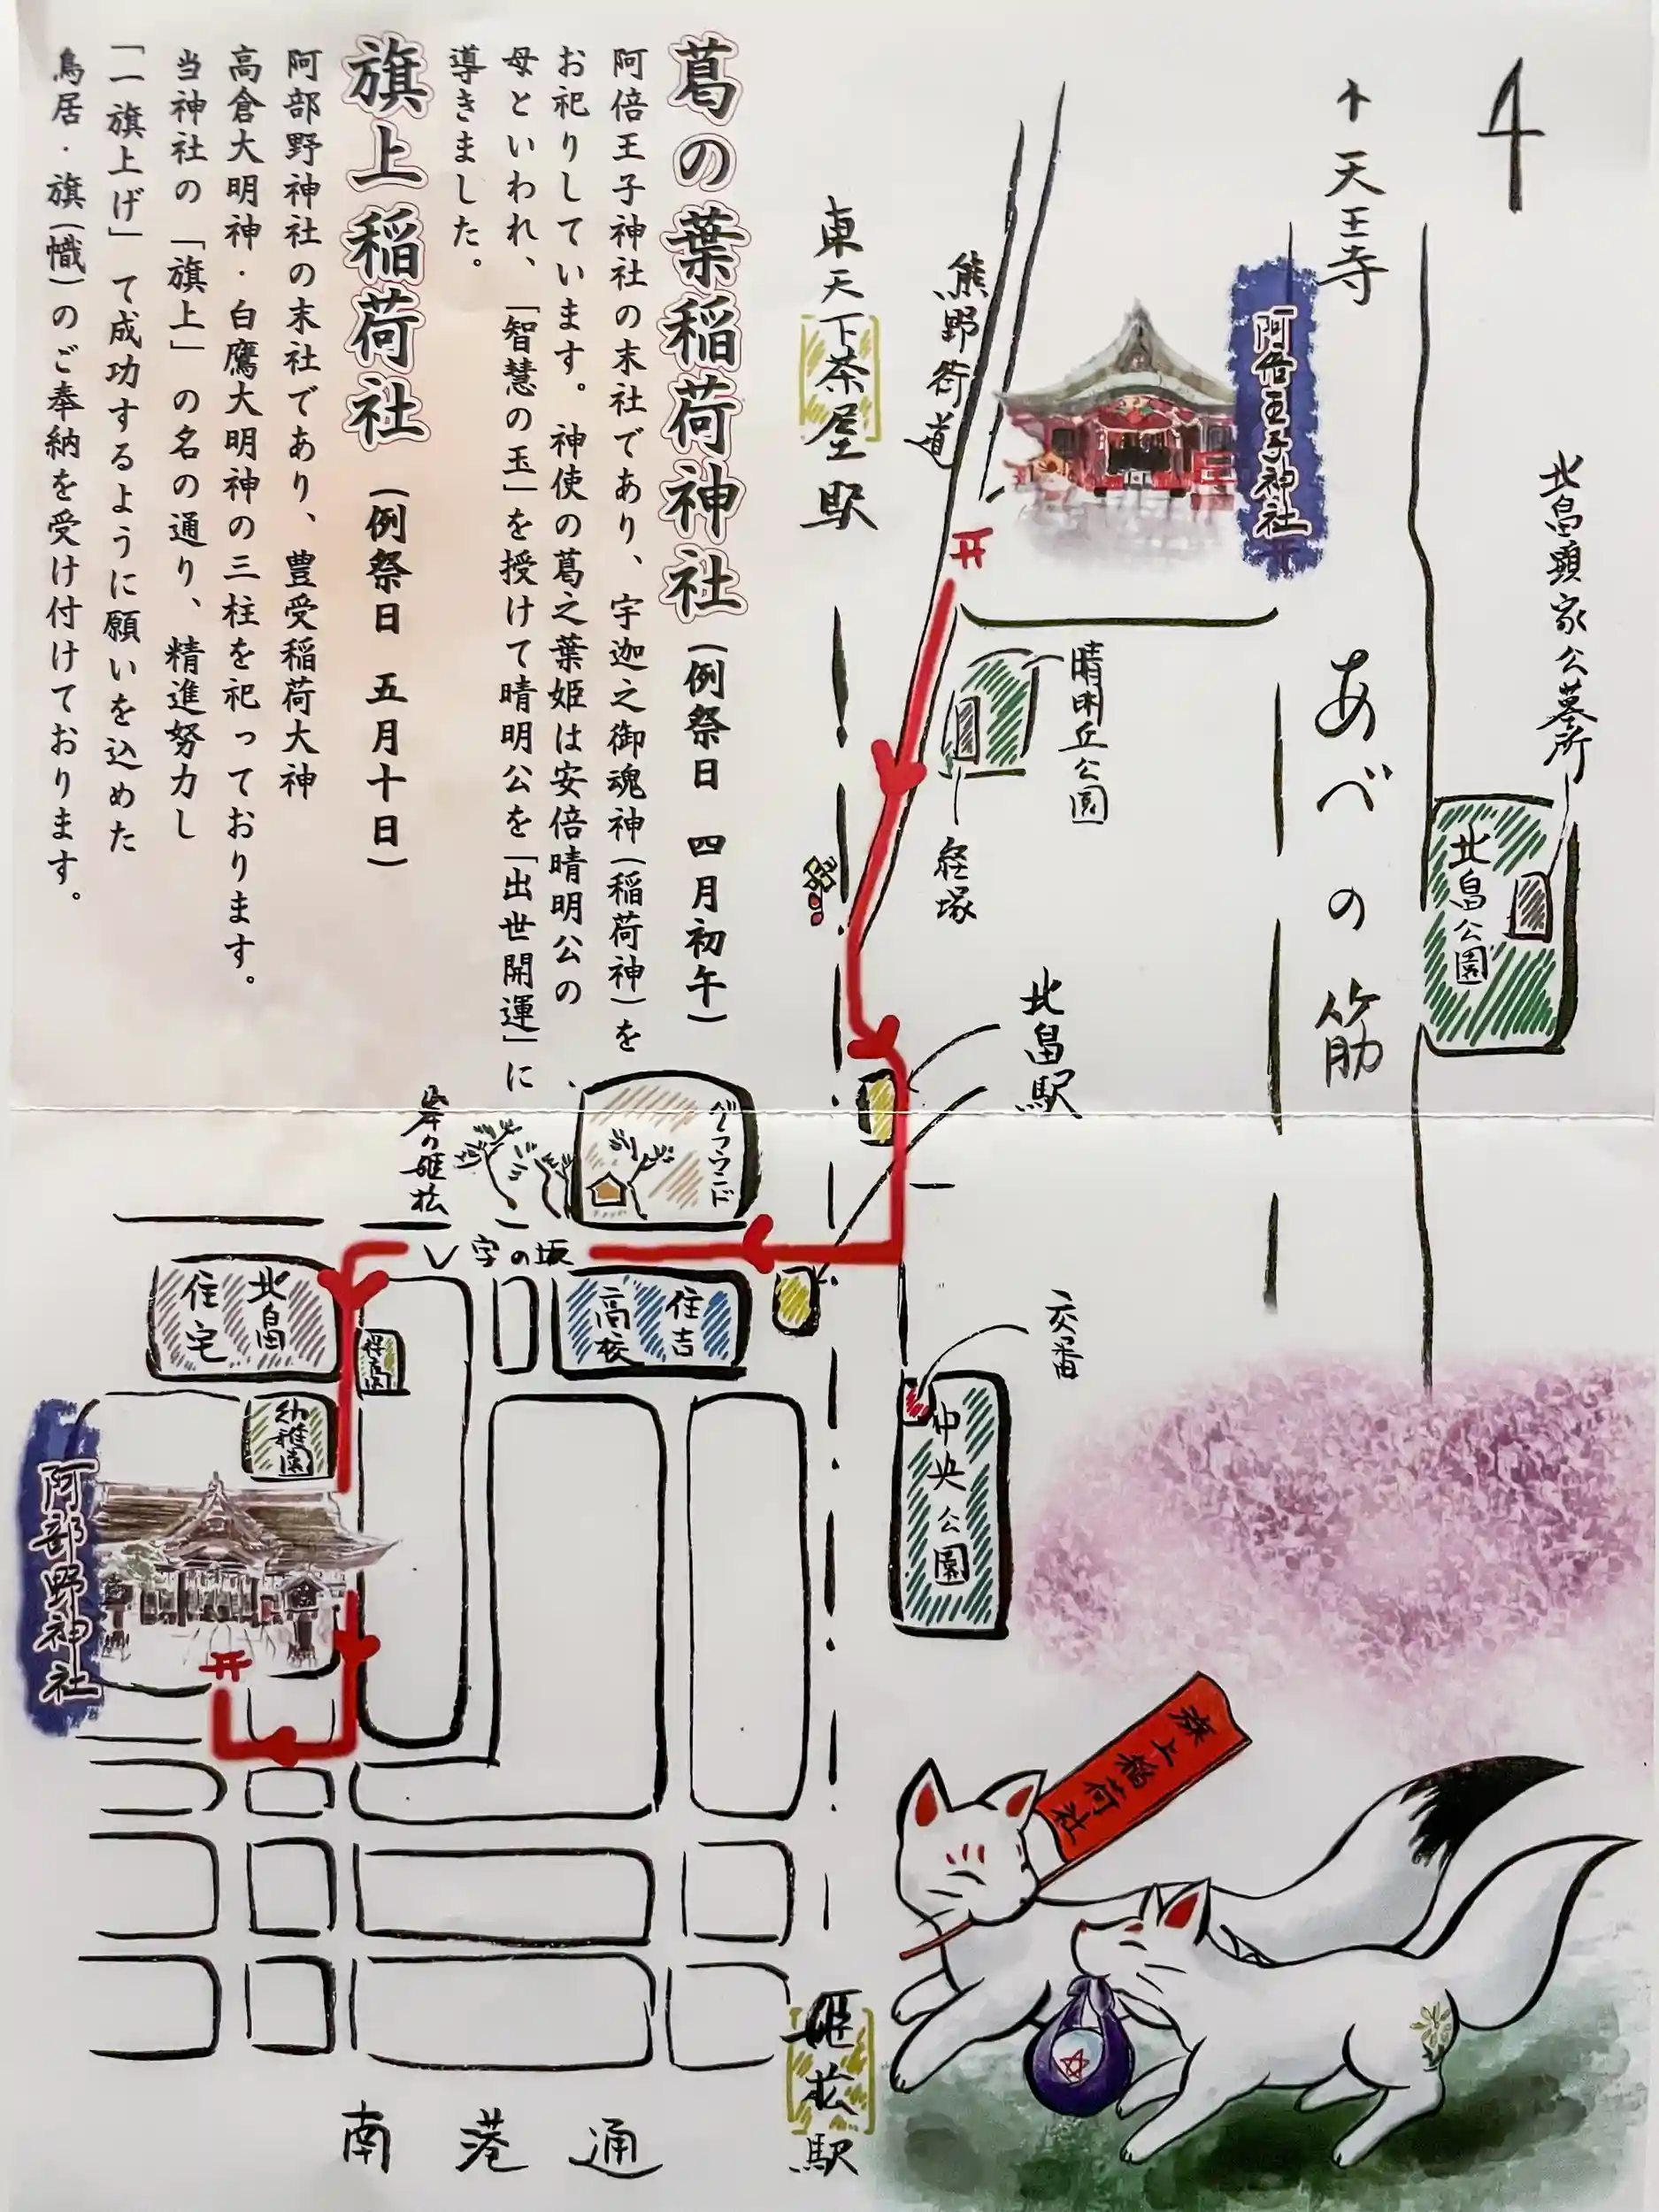 4
↑天王寺
北畠顕家公墓所
北畠公園
あべの筋
阿倍王子神社
熊野街道
東天下茶屋駅
晴明丘公園
経塚
北畠駅
交番
中央公園
葛の葉稲荷神社(例祭日 四月初午)
阿倍王子神社の末社であり、宇迦之御魂神(稲荷神)を
お祀りしています。神使の葛之葉姫は安倍晴明公の
母といわれ、「智慧の玉」を授けて晴明公を「出世開運」に
導きました。
旗上稲荷社(例祭日 五月十日)
阿部野神社の末社であり、豊受稲荷大神
高倉大明神・白鷹大明神の三柱を祀っております。
当神社の「旗上」の名の通り、精進努力し
「一旗上げ」て成功するように願いを込めた
鳥居・旗(幟)のご奉納を受け付けております。
グラウンド
岸の姫松
V字の坂
住吉高校
北畠住宅
保育園
幼稚園
阿部野神社
旗上稲荷社
姫松駅
南港通